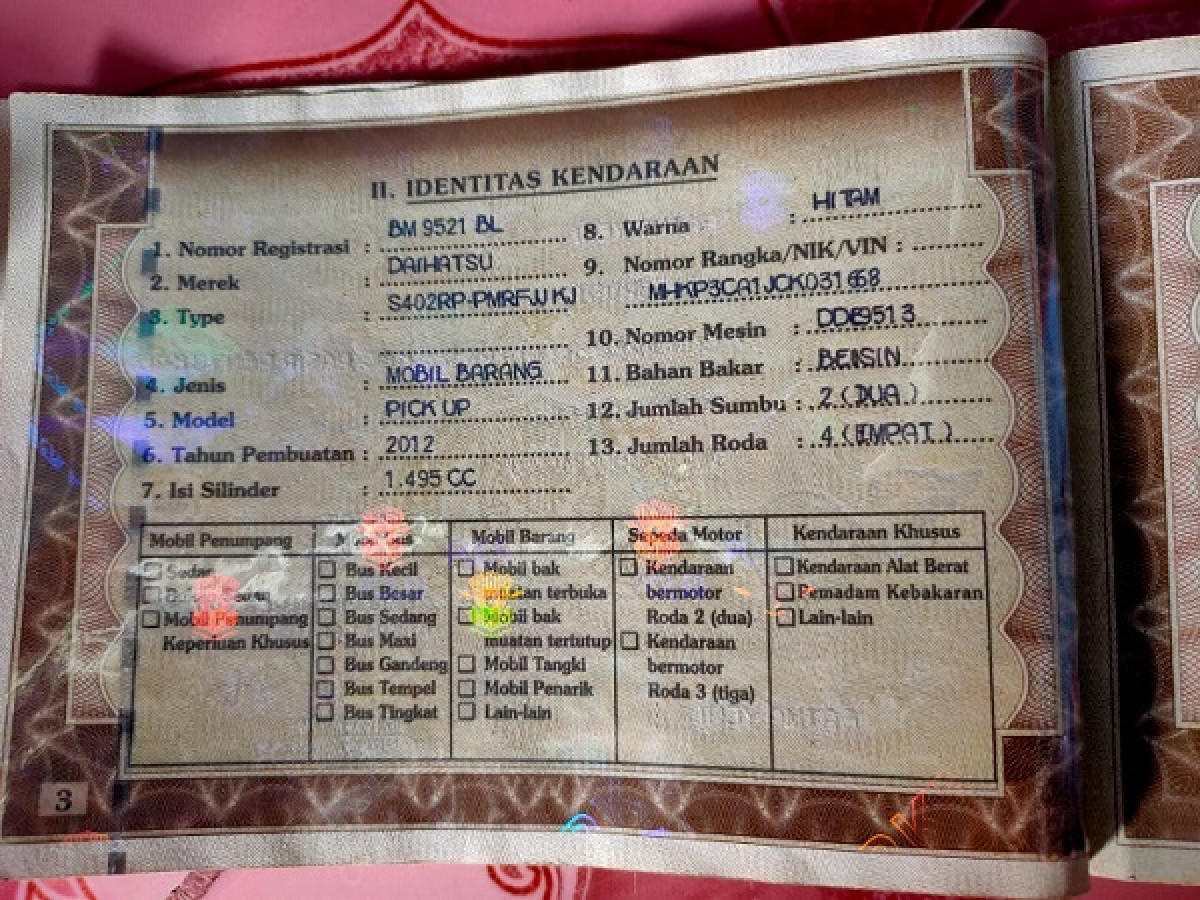 II. IDENTITAS KENDARAAN
1. Nomor Registrasi : BM 9521 BL
2. Merek : DAIHATSU
3. Type : S402RP-PMRFJJ KJ
4. Jenis : MOBIL BARANG
5. Model : PICK UP
6. Tahun Pembuatan : 2012
7. Isi Silinder : 1.495 CC
8. Warna : HITAM
9. Nomor Rangka/NIK/VIN :
MHKP3CA1JCK031658
10. Nomor Mesin :
11. Bahan Bakar : BENSIN
12. Jumlah Sumbu : 2 (DUA)
13. Jumlah Roda : 4 (EMPAT)
Mobil Penumpang
Sedan
Mobil Penumpang
Keperluan Khusus
Bus Kecil
Bus Besar
Bus Sedang
Bus Maxi
Bus Gandeng
Bus Tempel
Bus Tingkat
Mobil Barang
Mobil bak
muatan terbuka
Mobil bak
muatan tertutup
Mobil Tangki
Mobil Penarik
Lain-lain
Sepeda Motor
Kendaraan
bermotor
Roda 2 (dua)
Kendaraan
bermotor
Roda 3 (tiga)
Kendaraan Khusus
Kendaraan Alat Berat
Pemadam Kebakaran
Lain-lain
3